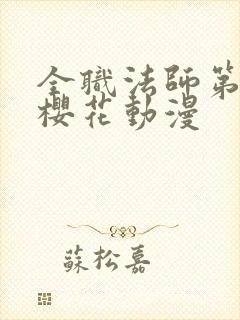 全職法師第
櫻花動漫
蘇松嘉